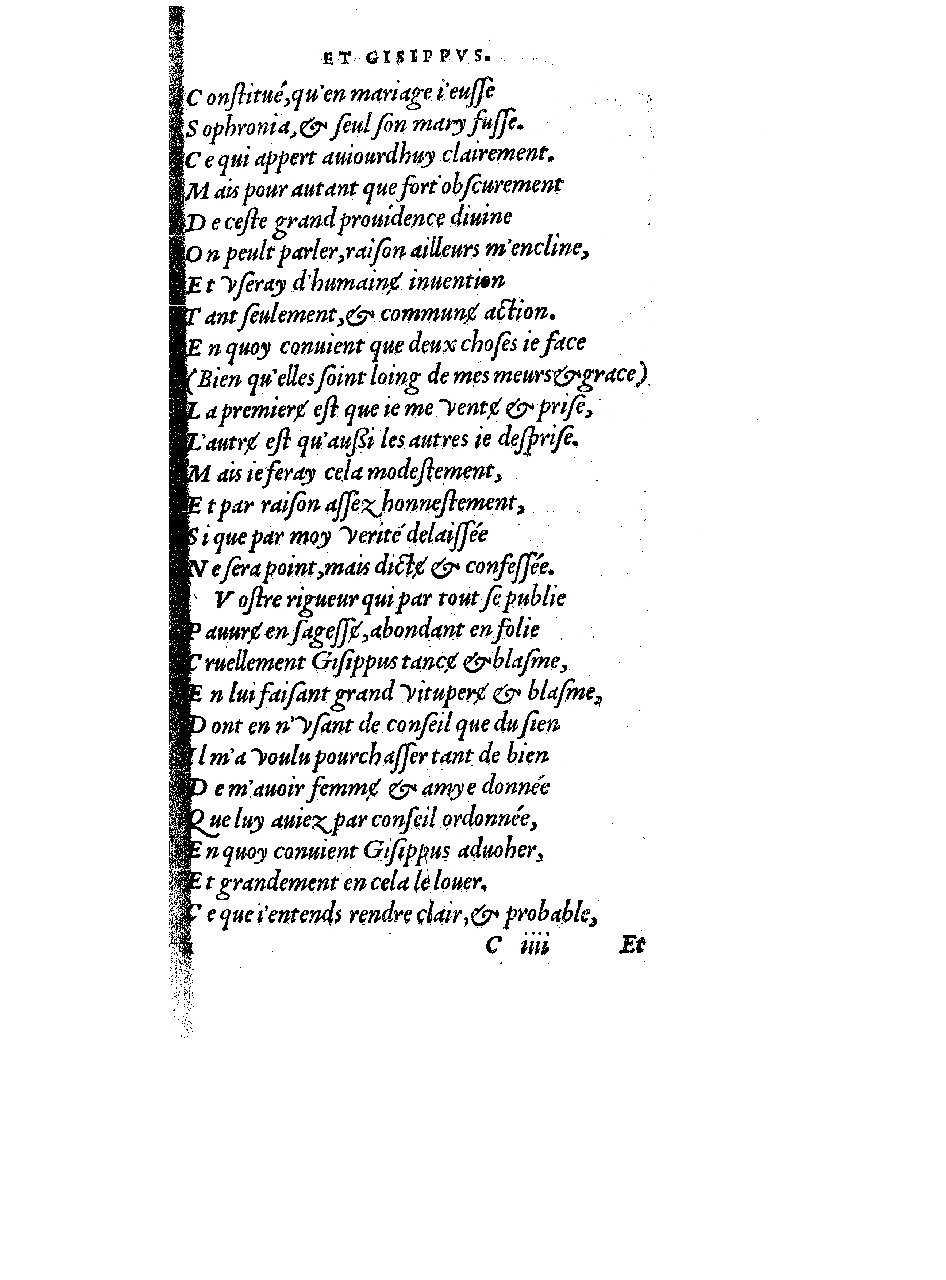 ET GISIPPVS.
Conſtitué, qu'en mariage i'euſſe
Sophronia, & ſeul ſon mary fuſſe.
Ce qui appert auiourdhuy clairement.
Mais pour autant que fort obſcurement
De ceſte grand prouidence diuine
On peult parler, raiſon ailleurs m'encline,
Et vſeray d'humainɇ inuention
Tant ſeulement, & communɇ action.
En quoy conuient que deux choſes ie face
(Bien qu'elles ſoint loing de mes meurs & grace)
La premierɇ eſt que ie me ventɇ & priſe,
L'autrɇ eſt qu'auſſi les autres ie deſpriſe.
Mais ie feray cela modeſtement,
Et par raiſon aſſez honneſtement,
Si que par moy verité delaiſſée
Ne ſera point, mais dictɇ & confeſſée.
Voſtre rigueur qui par tout ſe publie
Pauurɇ en ſageſſɇ, abondant en folie
Cruellement Giſippus tancɇ & blaſme,
En lui faiſant grand vituperɇ & blaſme,
Dont en n'vſant de conſeil que du ſien
Il m'a voulu pourchaſſer tant de bien
De m'auoir femmɇ & amye donnée
Que luy auiez par conſeil ordonnée,
En quoy conuient Giſippus aduoher,
Et grandement en cela le louer.
Ce que i'entends rendre clair, & probable,
C iiii Et